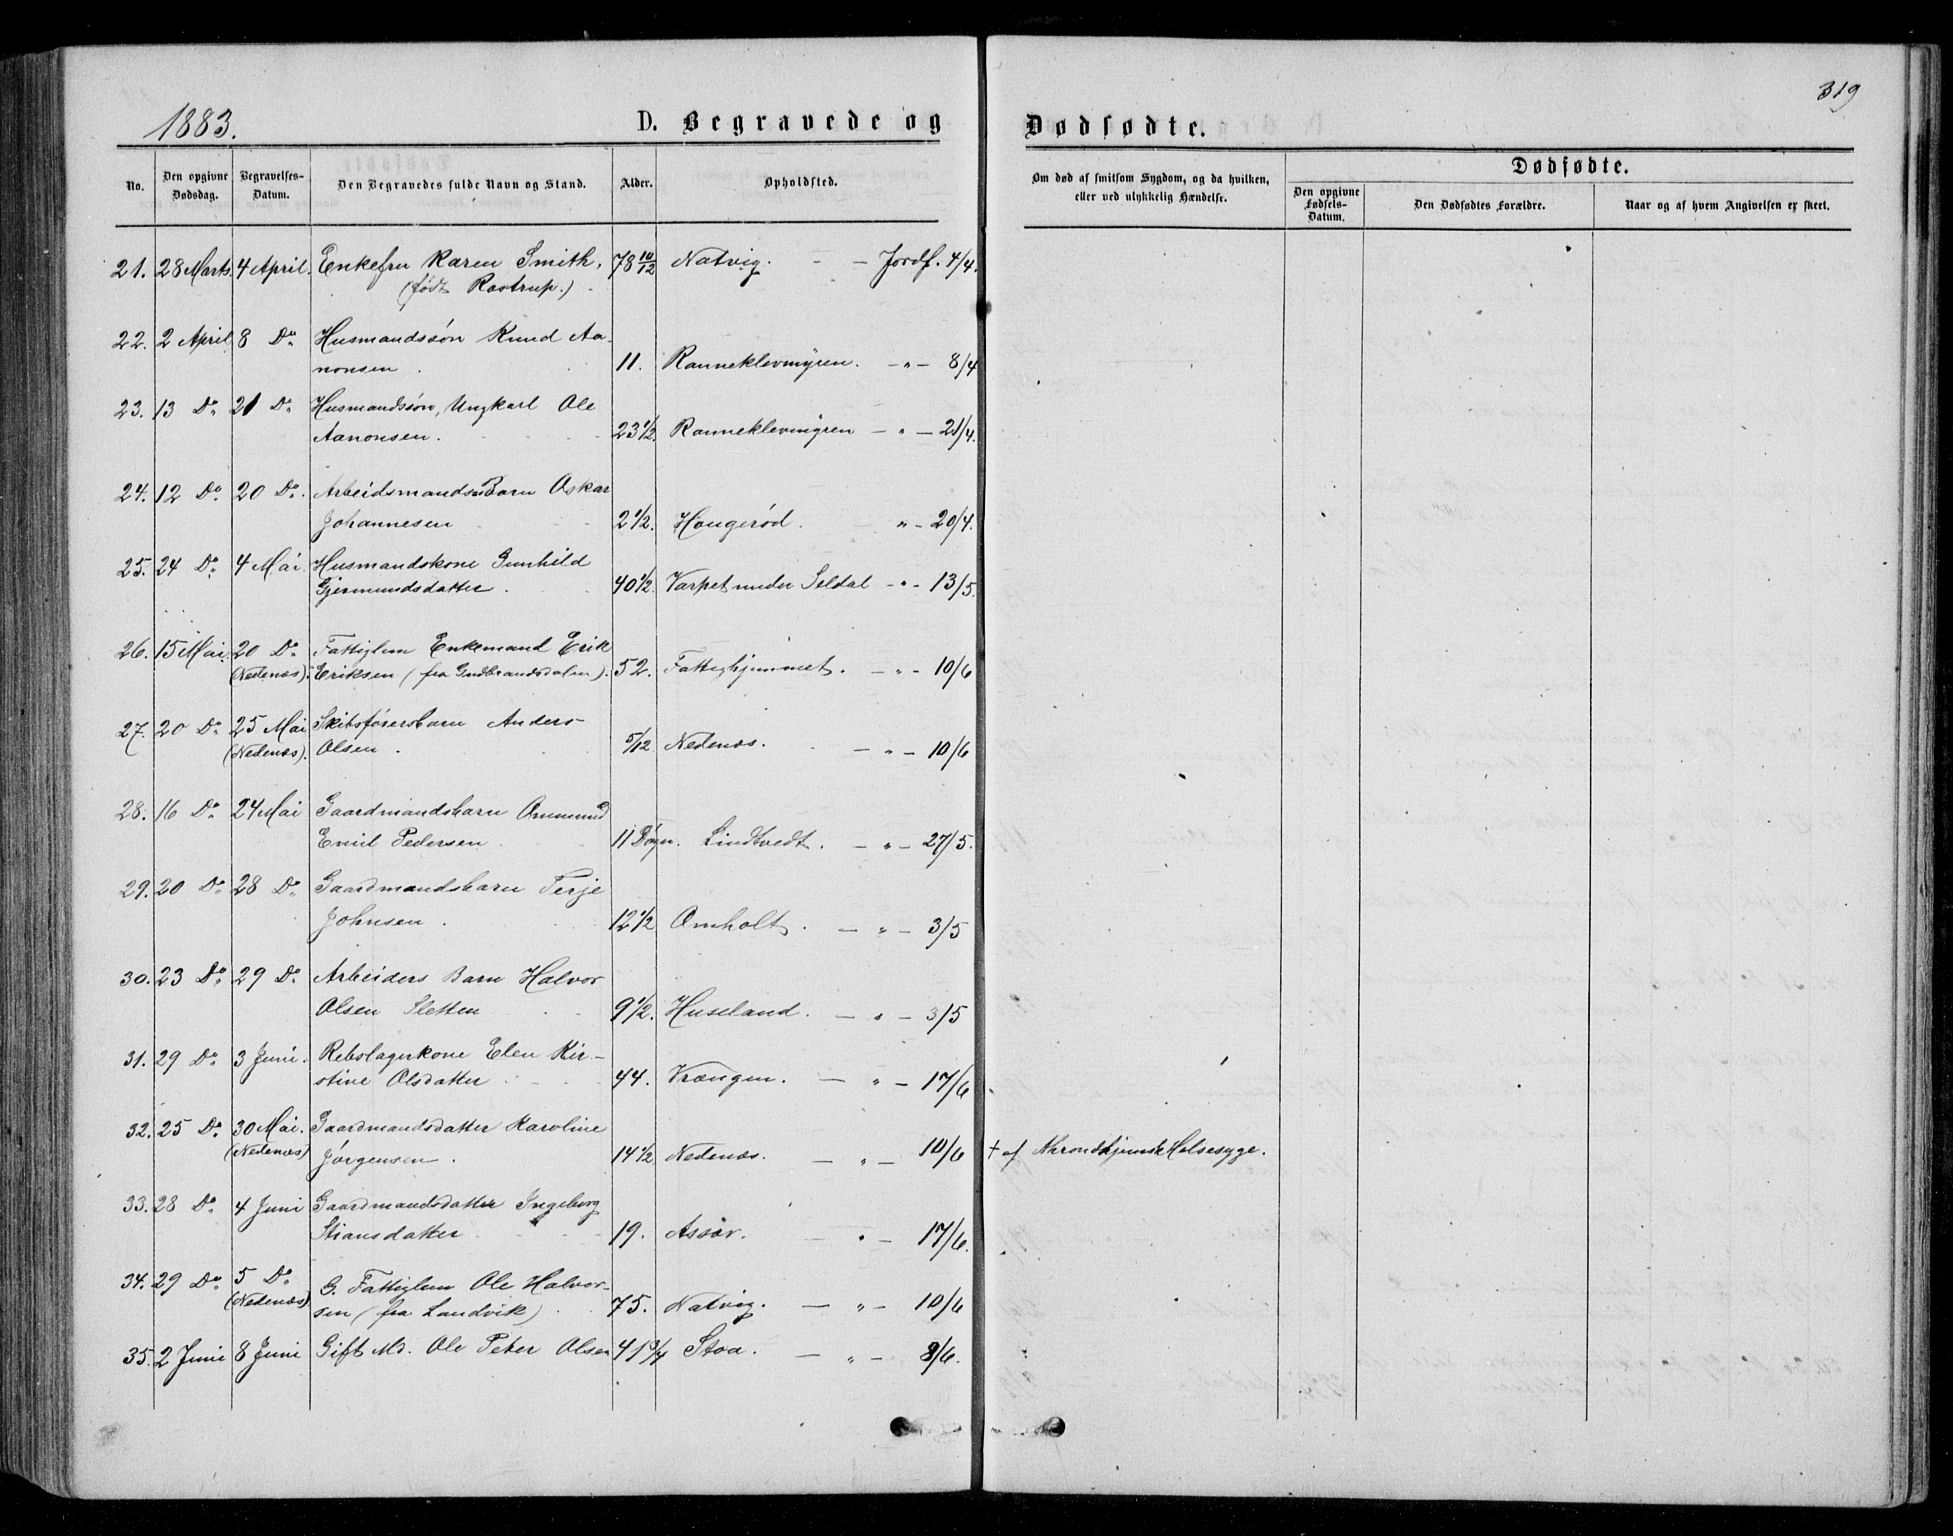 1883.
D. Begravede og
Dødfødte.
319
No.
Den opgivne Dødsdag.
Begravelses-Datum.
Den Begravedes fulde Navn og Stand.
Alder.
Opholdsted.
Om død af smitsom Sygdom, og da hvilken, eller ved ulykkelig Hændelse.
Dødfødte.
Den opgivne Fødsels-Datum.
Den Dødfødtes Forældre.
Naar og af hvem Angivelsen er skeet.
21. 28 Marts. 4 April. Enkefru Karen Smith, 78 10/12 Natvig. - - Jordf. 4/4.
(født Rostrup.)
22. 2 April 8 Do. Husmandssøn Knud Aa-
nonsen 11. Ranneklevmyren. - " - 8/4
23. 13 Do 21 Do. Husmandssøn, Ungkarl Ole
Aanonsen. 23 1/2. Ranneklevmyren - " - 21/4.
24. 12 Do. 20 Do. Arbeidsmands Barn Oskar
Johannesen 2 1/2. Haugerød. " - 20/4.
25. 24 Do. 4 Mai. Husmandskone Gunhild
Gjermundsdatter. 40 1/2. Varpet under Seldal - " - 13/5.
26. 15 Mai. 20 Do. Fattiglem Enkemand Erik
(Nedenæs). Eriksen (fra Gudbrandsdalen). 52. Fattighjemmet. - " - 10/6
27. 20 Do. 25 Mai Skibsførersbarn Anders
(Nedenæs). Olsen. 5/12 Nedenæs. - " - 10/6
28. 16 Do. 24 Mai Gaardmandsbarn Ommund
Emil Pedersen 11 Døgn. Lindtvedt. - " - 27/5.
29. 20 Do. 28 Do. Gaardmandsbarn Terje
Johnsen. 12 1/2 Omholt. - " - 3/5
30. 23 Do. 29 Do. Arbeiders Barn Halvor
Olsen Sletten 9 1/2. Huseland. - " - 3/5
31. 29 Do. 3 Juni. Rebslagerkone Elen Kir-
stine Olsdatter 44. Vrængen. - " - 17/6
32. 25 Do. 30 Mai. Gaardmandsdatter Karoline
(Nedenæs) Jörgensen. 14 1/2 Nedenæs. - " - 10/6 + af Halsesyge.
33. 28 Do. 4 Juni Gaardmandsdatter Ingeborg
Stiansdatter 19. Assær. - " - 17/6.
34. 29 Do. 5 Do. G. Fattiglem Ole Halvor-
(Nedenæs) sen (fra Landvik) 75. Natvig. - " - 10/6
35. 2 Juni 8 Juni Gift Md. Ole Peter Olsen 41 3/4 Stoa. - " - 8/6.